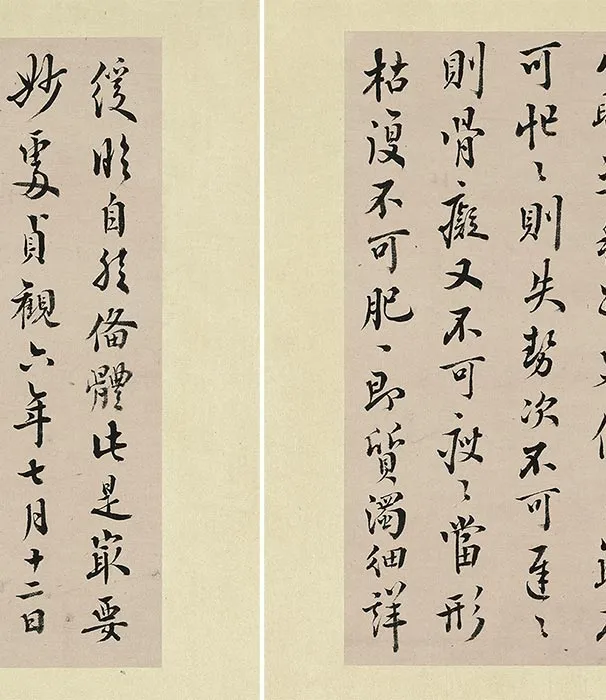 可忙〻則失勢次不可遲〻
則骨癡又不可瘦〻當形
枯復不可肥〻即質濁細詳
緩臨自然備體此是最要
妙處貞觀六年七月十二日